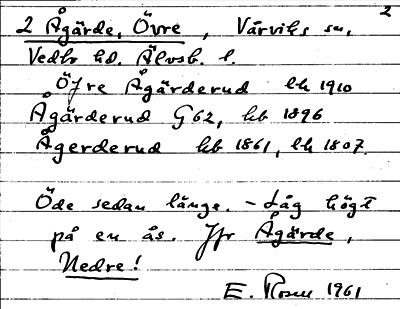 2
2 Ågärde, Övre, Värviks sn,
Vedbo hd. Älvsb. l.
Öfre Ågärderud lh 1910
Ågärderud G62, kb 1896
Ågerderud kb 1861, lh 1807.
Öde sedan länge. - Låg högt
på en ås. Jfr Ågärde,
Nedre!
E. Rosen 1961